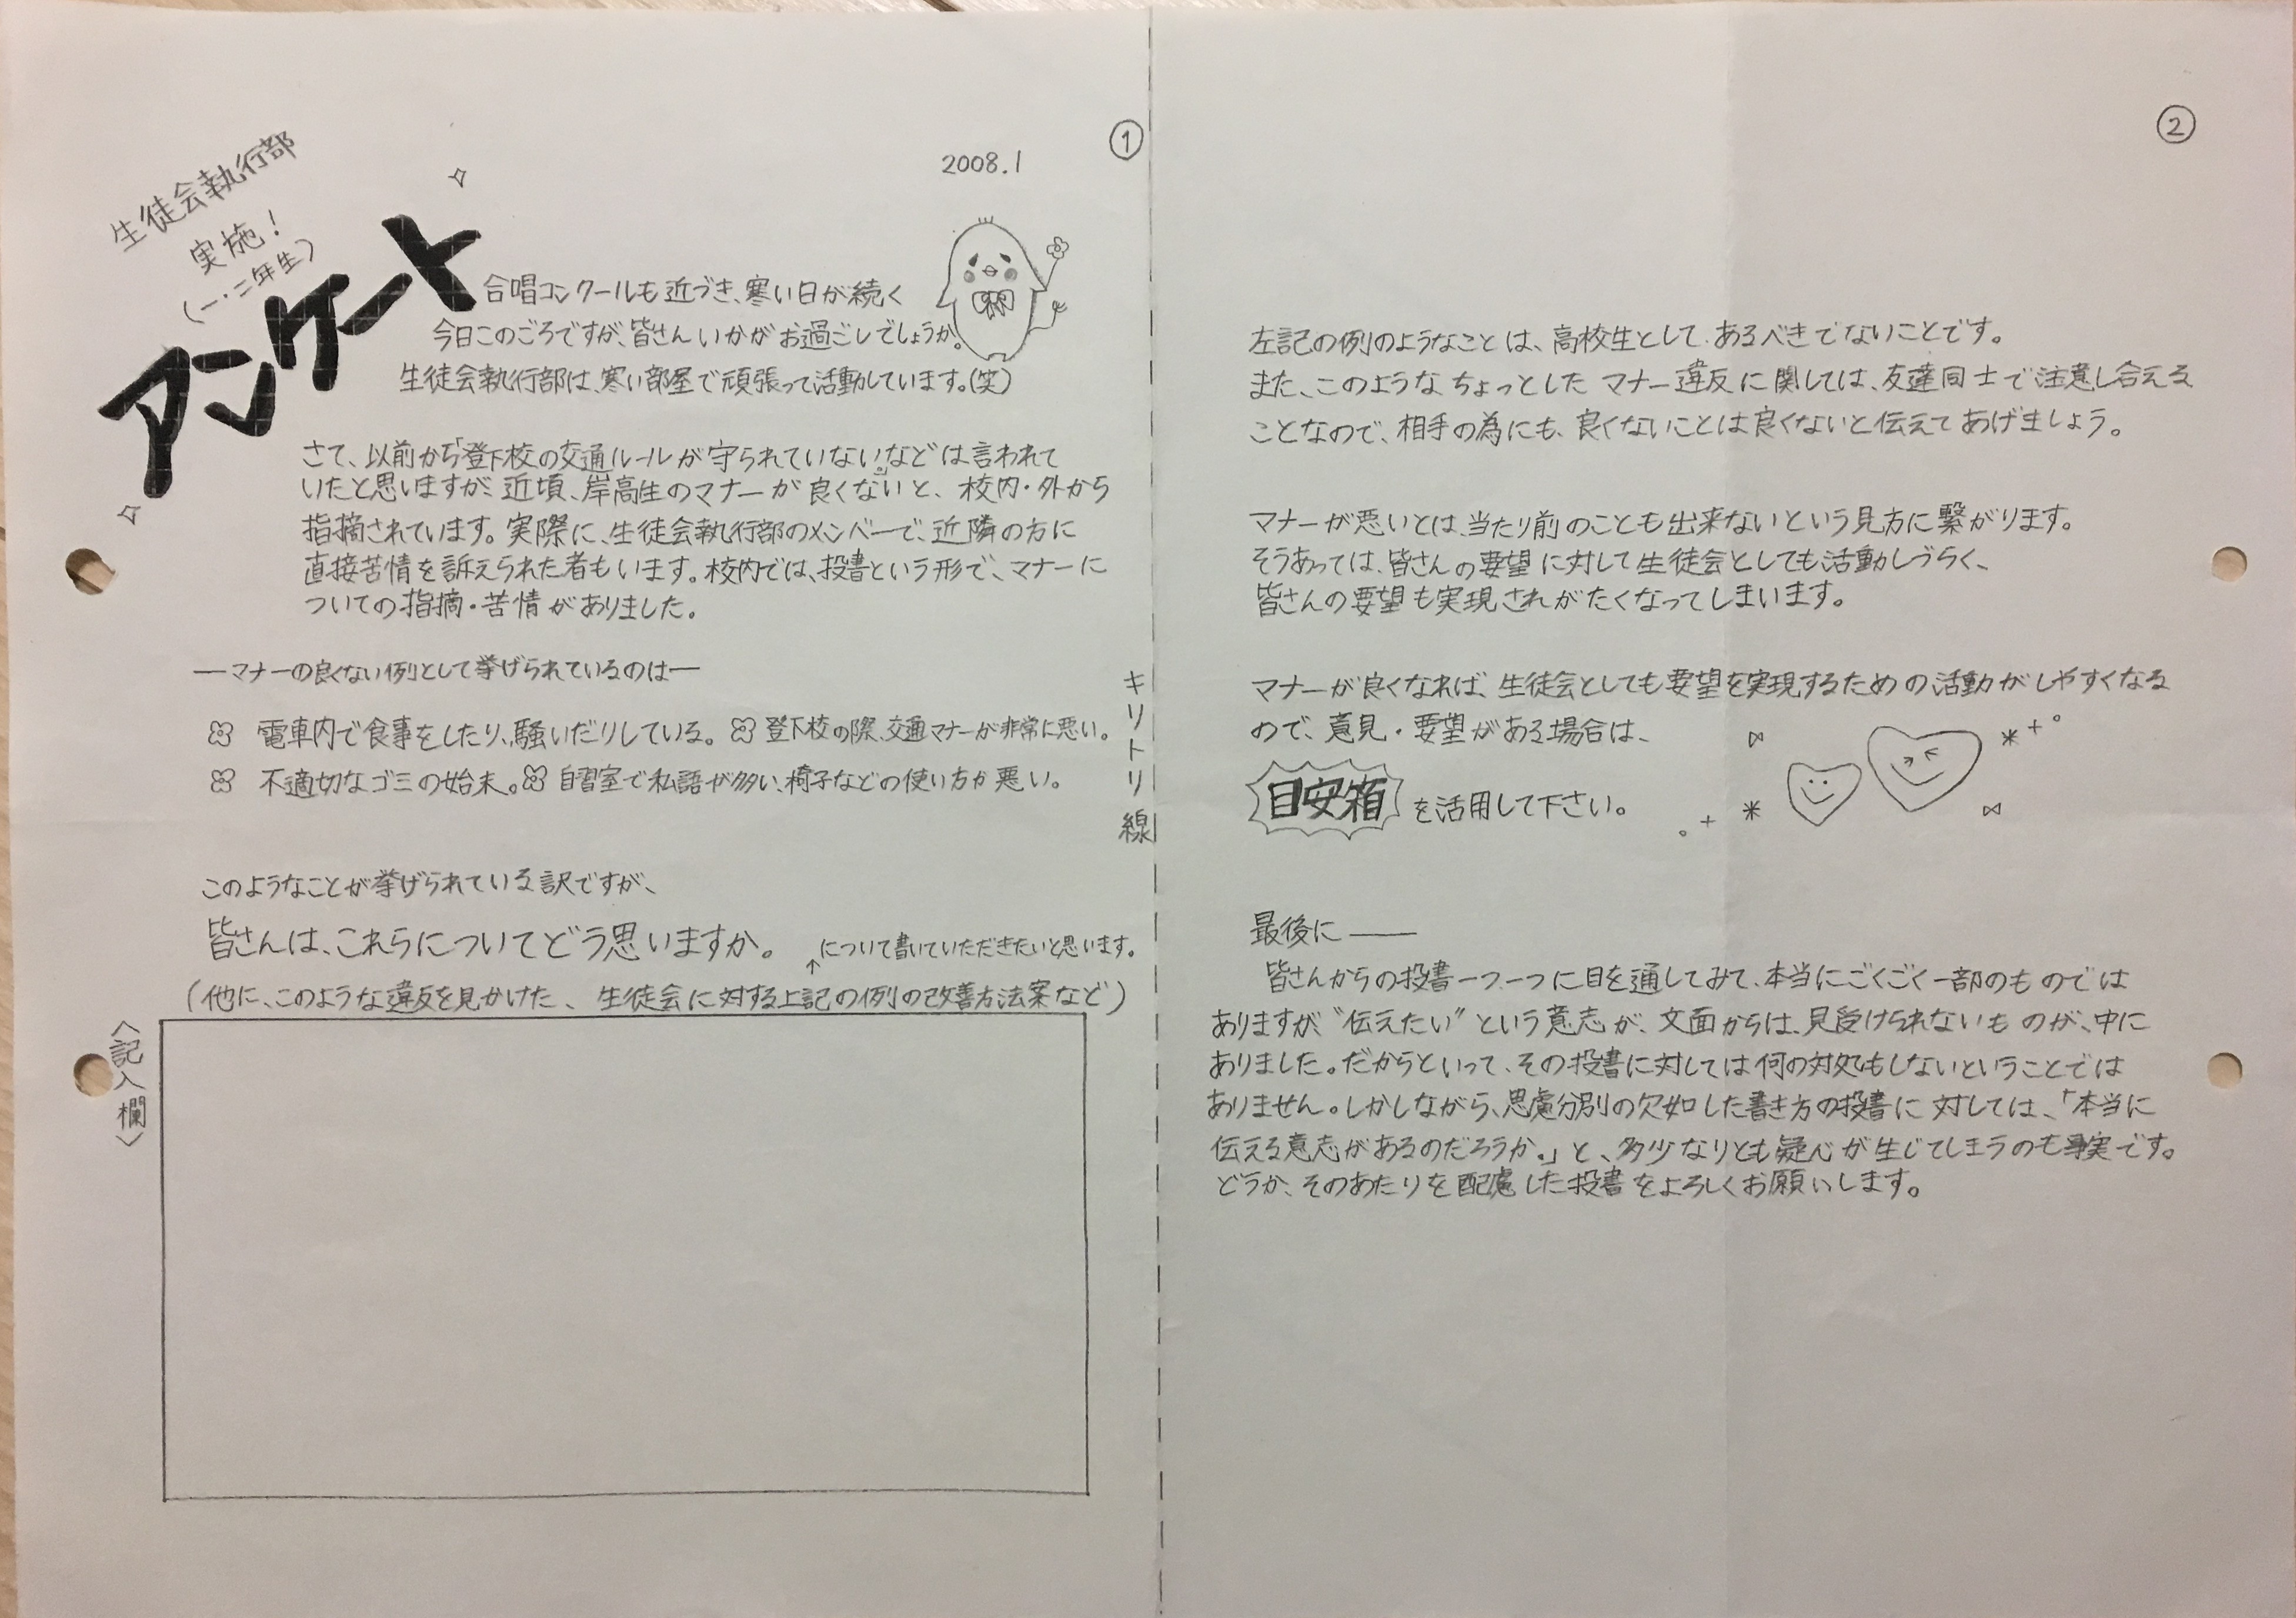 ①
2008.1
生徒会執行部
実施!
(一・二年生)
アンケート
合唱コンクールも近づき、寒い日が続く
今日このごろですが、皆さんいかがお過ごしでしょうか。
生徒会執行部は、寒い部屋で頑張って活動しています。(笑)
さて、以前から「登下校の交通ルールが守られていない。」などは言われて
いたと思いますが、近頃、岸高生のマナーが良くないと、校内・外から
指摘されています。実際に、生徒会執行部のメンバーで、近隣の方に
直接苦情を訴えられた者もいます。校内では、投書という形で、マナーに
ついての指摘・苦情がありました。
―マナーの良くない例として挙げられているのは―
電車内で食事をしたり、騒いだりしている。 登下校の際、交通マナーが非常に悪い。
不適切なゴミの始末。 自習室で私語が多い、椅子などの使い方が悪い。
このようなことが挙げられている訳ですが、
皆さんは、これらについてどう思いますか。 ↑について書いていただきたいと思います。
(他に、このような違反を見かけた、生徒会に対する上記の例の改善方法案など)
〈記入欄〉
キリトリ線
②
左記の例のようなことは、高校生として、あるべきでないことです。
また、このようなちょっとしたマナー違反に関しては、友達同士で注意し合える
ことなので、相手の為にも、良くないことは良くないと伝えてあげましょう。
マナーが悪いとは、当たり前のことも出来ないという見方に繋がります。
そうあっては、皆さんの要望に対して生徒会としても活動しづらく、
皆さんの要望も実現されがたくなってしまいます。
マナーが良くなれば、生徒会としても要望を実現するための活動がしやすくなる
ので、意見・要望がある場合は、
目安箱を活用して下さい。
最後に――
皆さんからの投書一つ一つに目を通してみて、本当にごくごく一部のものでは
ありますが“伝えたい”という意志が、文面からは、見受けられないものが、中に
ありました。だからといって、その投書に対しては何の対処もしないということでは
ありません。しかしながら、思慮分別の欠如した書き方の投書に対しては、「本当に
伝える意志があるのだろうか。」と、多少なりとも疑心が生じてしまうのも事実です。
どうか、そのあたりを配慮した投書をよろしくお願いします。